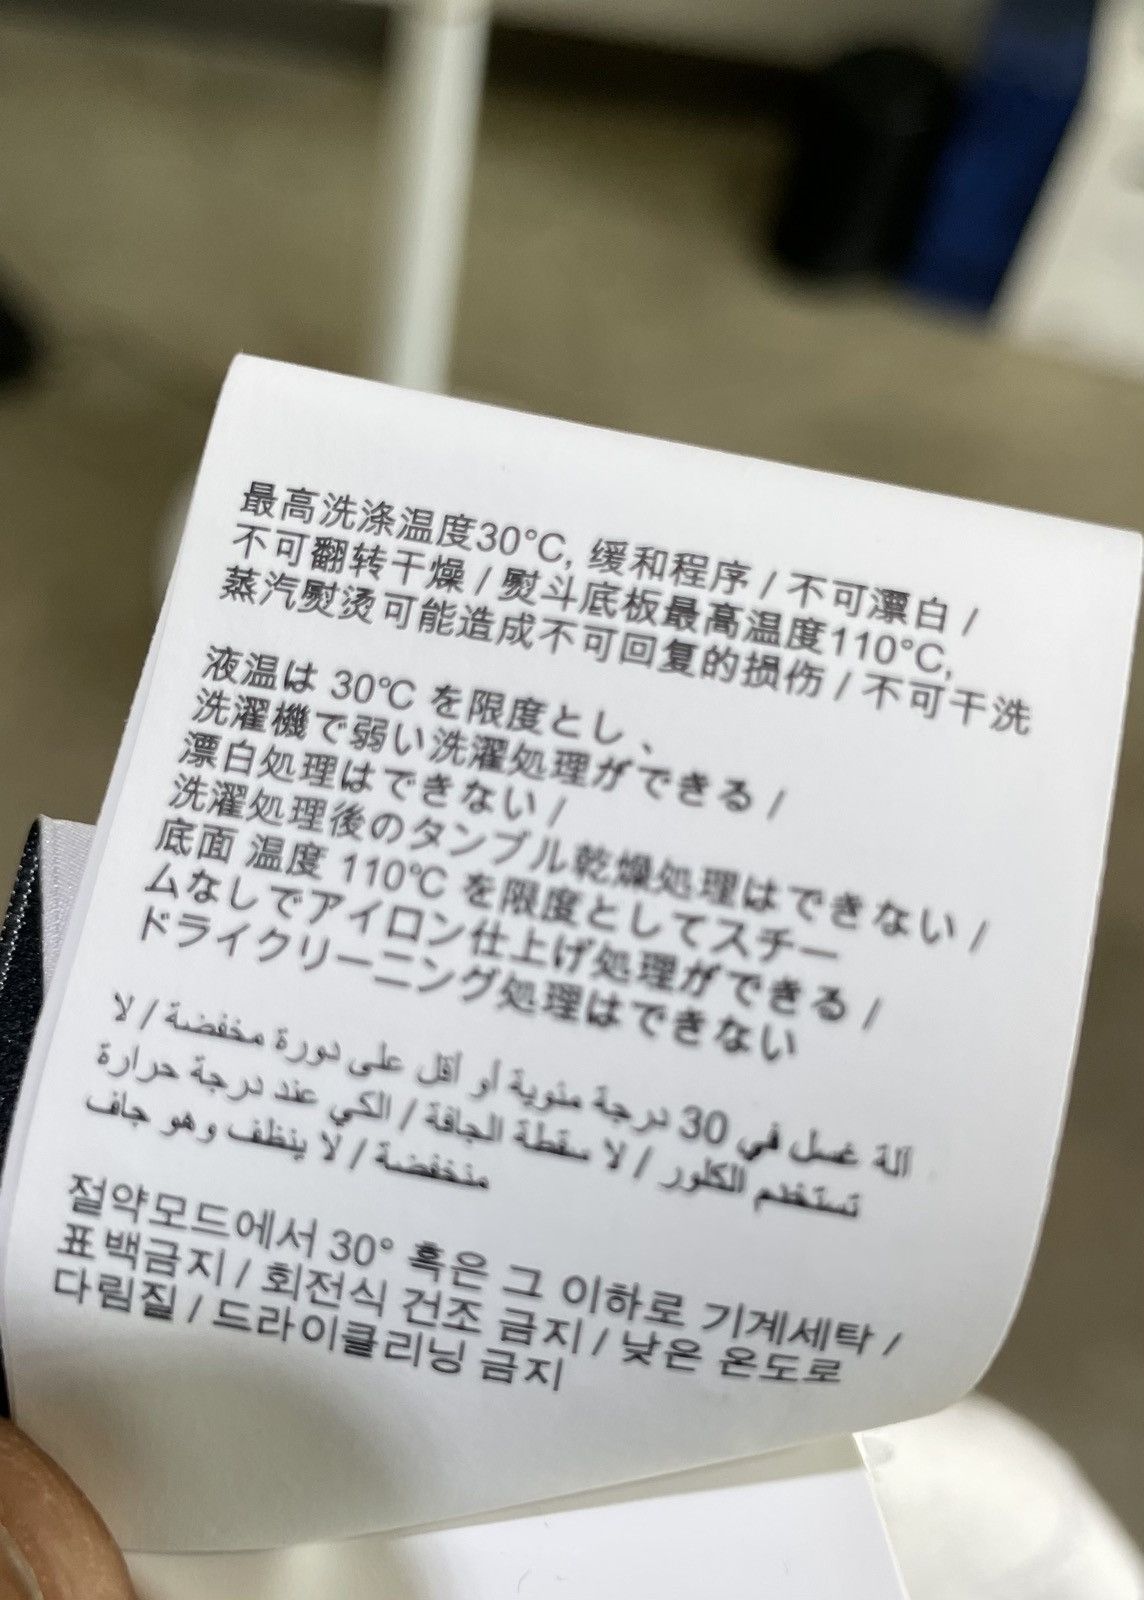 最高洗涤温度30°C, 缓和程序 / 不可漂白 /
不可翻转干燥 / 熨斗底板最高温度110°C,
蒸汽熨烫可能造成不可回复的损伤 / 不可干洗
液温は 30℃ を限度とし 、
洗濯機で弱い洗濯処理ができる /
漂白処理はできない /
洗濯処理後のタンブル乾燥処理はできない /
底面 温度 110℃ を限度としてスチー
ムなしでアイロン仕上げ処理ができる /
ドライクリーニング処理はできない
آلة غسل في 30 درجة منوية أو أقل على دورة مخفضة / لا
تستخدم الكلور / لا سقطة الجافة / الكي عند درجة حرارة
منخفضة / لا ينظف وهو جاف
절약모드에서 30° 혹은 그 이하로 기계세탁 /
표백금지 / 회전식 건조 금지 / 낮은 온도로
다림질 / 드라이클리닝 금지